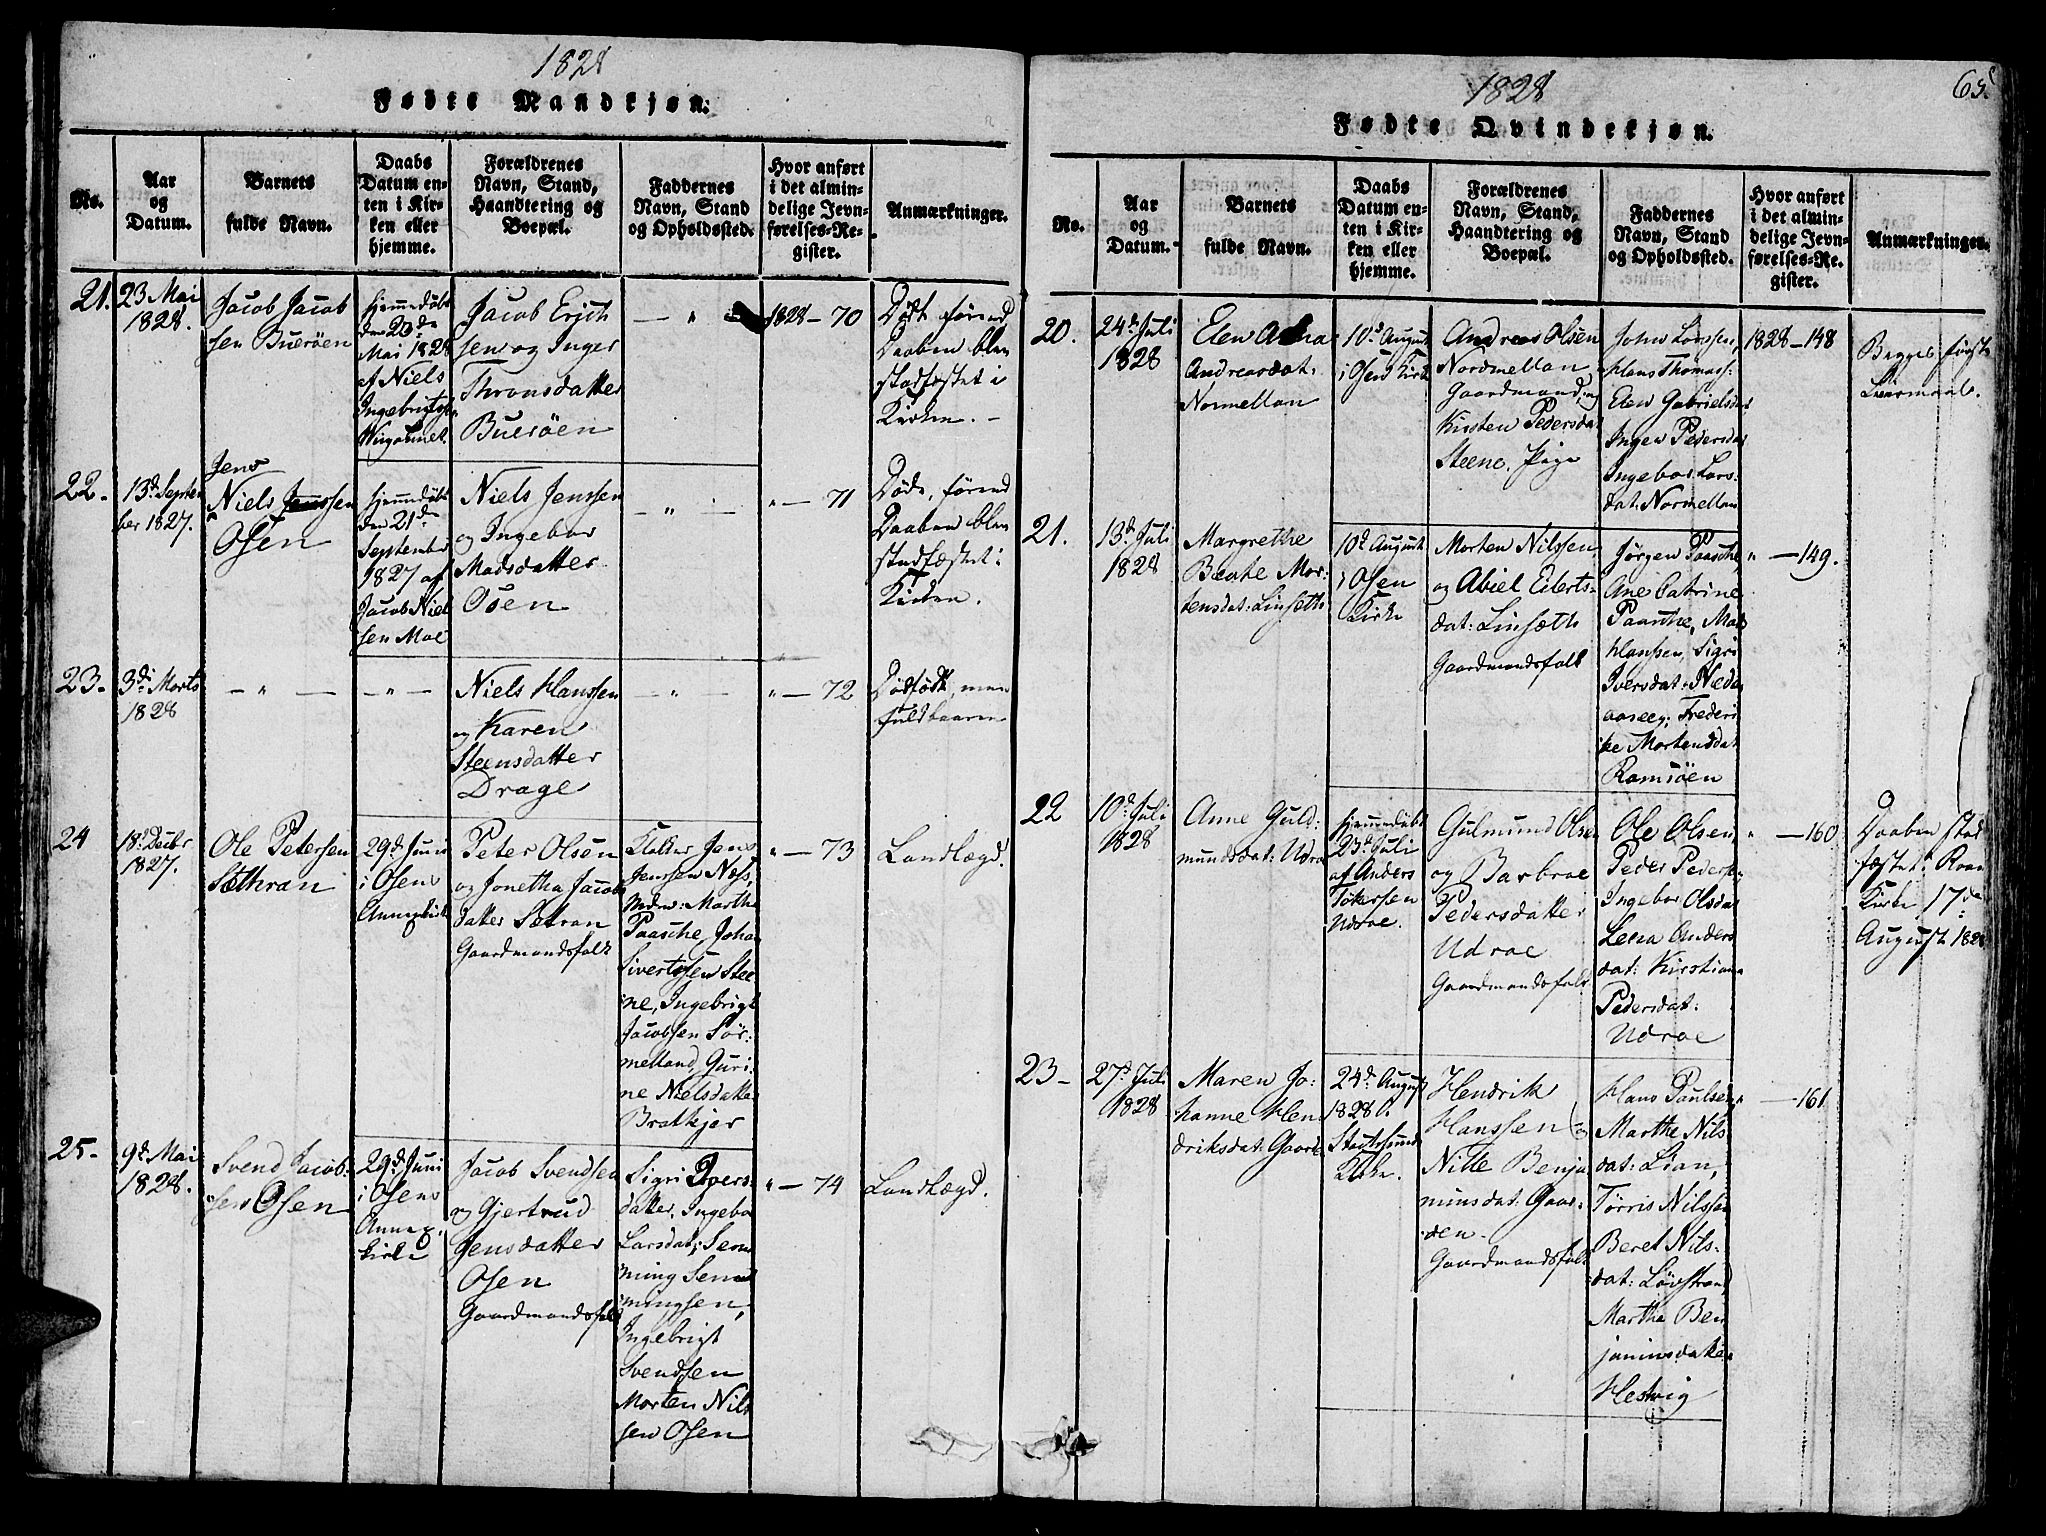 1828
Fødte Mandkjøn.
No.
Aar
og
Datum.
Barnets
fulde Navn.
Daabs
Datum en-
ten i Kir-
ken eller
hjemme.
Forældrenes
Navn, Stand,
Haandtering og
Boepæl.
Faddernes
Navn, Stand
og Opholdssted.
Hvor anført
i det almin-
delige Jevn-
førelses-Re-
gister.
Anmærkninger.
21.
23 Mai
1828.
Jacob Jacob
sen Buerøen
Hjemmedøbt
den 23de
Mai 1828
af Niels
Ingebrigts.
Jacob Erich
sen og Inger
Thronsdatter
Buerøen
— " —
1828 — 70
Død førend
Daaben blev
stadfæstet i
Kirken. —
22.
13d Septem
ber 1827.
Jens
Niels Jenssen
Osen
Hjemmedøbt
den 21de
September
1827 af
Jacob Niel
sen Moe
Niels Jenssen
og Ingebor
Madsdatter
Osen
— " —
" — 71
Døde, førend
Daaben blev
stadfæstet i
Kirken.
23.
3d Marts
1828
— " —
— " —
Niels Hanssen
og Karen
Steensdatter
Drage
— " —
" — 72
Dødfødt, men
fuldbaaren
24
18d Decbr
1827.
Ole Petersen
Sæthran
29d Juni
i Osens
Annexkirke
Peter Olsen
og Jonetha Jacobs
datter Sætran
Gaardmandsfolk
Klokker Jens
Jenssen Næss,
Mdm: Marthe
Paasche, Johan
Sivertssen Stee
ne, Ingebrigt
Jacobsen Sør-
melland, Guri-
ne Nielsdatter
Bratkjer
" — 73
Landlægd.
25.
9d Mai
1828.
Svend Jacob-
sen Osen
29d Juni
i Osens
Annex-
kirke
Jacob Svendsen
og Gjertrud
Jensdatter
Osen
Gaardmandsfolk
Sigri Ivers-
datter, Ingebor
Larsdat; Sem
ming Sem
mingsen,
Ingebrigt
Svendsen
Morten Nils
sen Osen
" — 74
Landlægd.
1828
65.
Fødte Qvindekjøn.
No.
Aar
og
Datum.
Barnets
fulde Navn.
Daabs
Datum en-
ten i Kir-
ken eller
hjemme.
Forældrenes
Navn, Stand,
Haandtering og
Boepæl.
Faddernes
Navn, Stand
og Opholdssted.
Hvor anført
i det almin-
delige Jevn-
førelses-Re-
gister.
Anmærkninger.
20.
24d Juli
1828
Elen Anna
Andreasdat:
Normellan
10d August
i Osen Kirke
Andreas Olsen
Nordmellan
Gaardmand, og
Kirsten Pedersdat
Steene, Pige
Johns Larssen,
Hans Thomass:
Elen Gabrielsdat
Inger Pedersdat
Ingebor Lars-
dat: Normellan
1828 — 148
Begges første
Leiermaal.
21.
13d Juli
1828
Margrethe
Beate Mor-
tensdat: Linseth
10d August
i Osen
Kirke
Morten Nilssen
og Abiel Eilerts-
dat: Linsæth
Gaardmandsfolk
Jørgen Paasche
Ane Catrine
Paasche, Mads
Hanssen, Sigri
Iversdat: Næd
aaseeg; Frederi
ke Mortensdat
Ramsøen
" — 149.
22
10d Juli
1828
Anne Guld-
mundsdat: Udroe
Hjemmedøbt
23d Juli
af Anders
Tøkersen
Udroe.
Gulmund Olsen
og Barbroe
Pedersdatter
Udroe
Gaardmandsfolk
Ole Olsen,
Peder Peders:
Ingebor Olsdat
Lena Anders
dat: Kirstiana
Pedersdat:
Udroe
" — 160
Daaben stad
fæstet i Roan
Kirke 17de
August 1828
23 —
27d Juli
1828
Maren Jo-
hanne Hen
driksdat: Gaard
24d August
1828 i
Stogtssund
Kirke.
Hendrik
Hanssen og
Nille Benja
minsdat: Gaar-
den —
Gaardmandsfolk
Hans Paulsen,
Marthe Nils
dat: Lian,
Tørris Nilssen
Beret Nils-
dat: Løvstrand
Martha Ben
jaminsdatter
Hestvig
" — 161